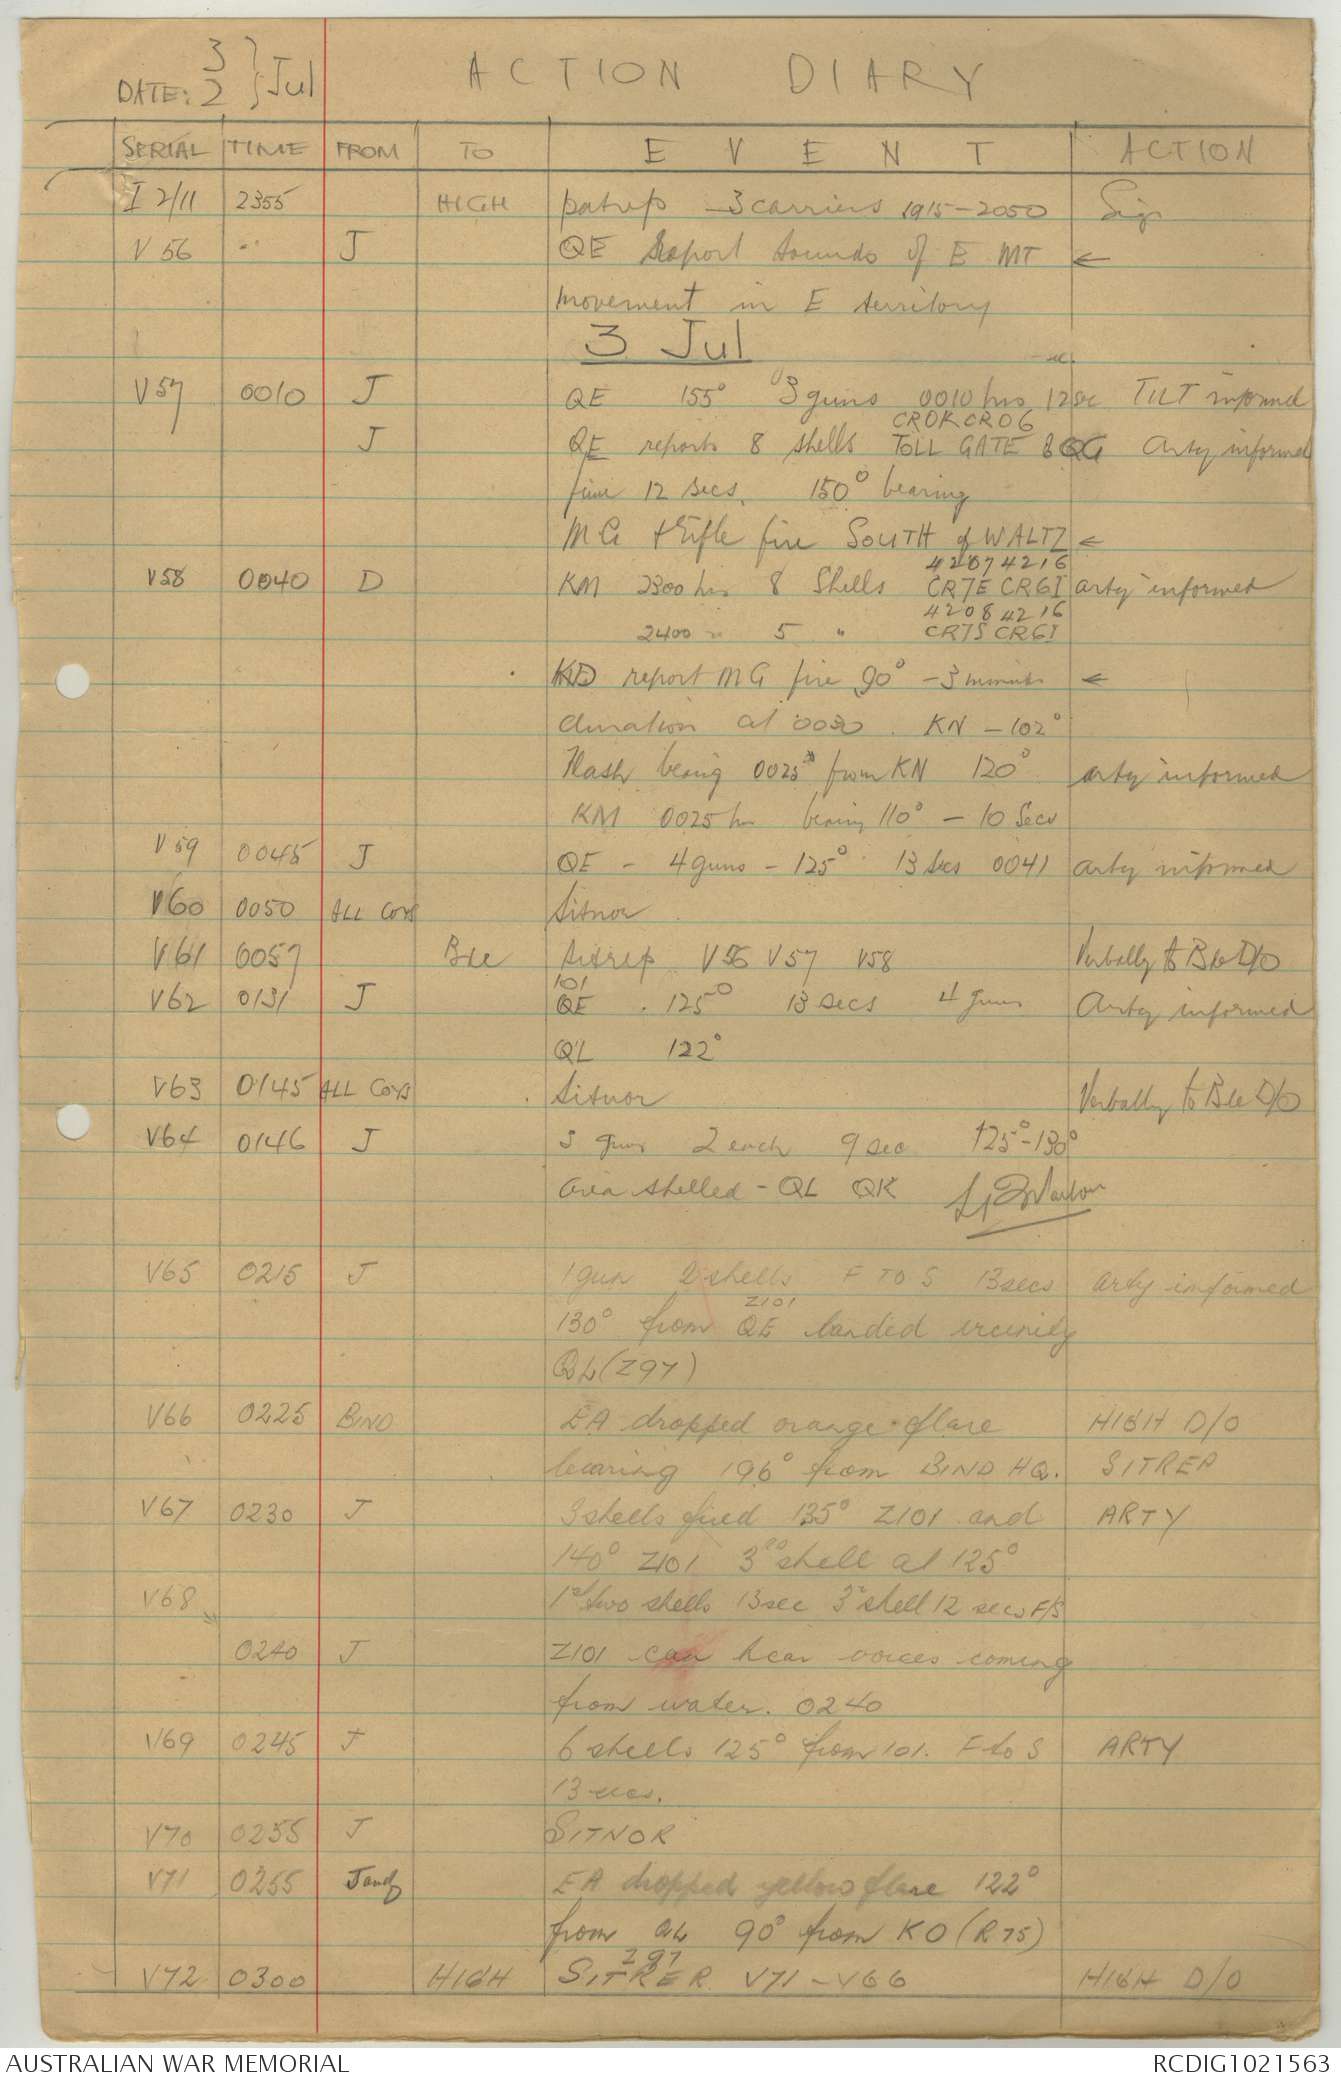 3 } Jul
DATE: 2
ACTION DIARY
SERIAL TIME FROM TO EVENT ACTION
I 2/11 2355 HIGH patrep - 3 carriers 1915-2050 Sigs
V 56 " J QE Report sounds of E MT ←
movement in E territory
3 Jul
V57 0010 J QE 155° 3 guns 0010 hrs 12 sec TILT informed
CROK CROG
J QE reports 8 shells TOLL GATE Arty informed
time 12 secs. 150° bearing
MG + Rifle fire SOUTH of WALTZ ←
4207 4216
V58 0040 D KM 2300 hrs 8 Shells CR7E CR6I arty informed
4208 4216
2400 " 5 " CR7S CR6I
KD report MG fire 90° - 3 minutes ←
duration at 0030. KN - 102°
Flash bearing 0025 from KN 120° arty informed
KM 0025 hrs bearing 110° - 10 Secs
V59 0045 J QE - 4 guns - 125° 13 secs 0041 arty informed
V60 0050 ALL COYS Sitnor
V61 0057 Bde Sitrep V56 V57 V58 Verbally to Bde D/O
101
V62 0131 J QE . 125° 13 secs 4 guns Arty informed
QL 122°
V63 0145 ALL COYS Sitnor Verbally to Bde D/O
V64 0146 J 3 guns 2 each 9 sec 125°-130°
Area shelled - QL QK
V65 0215 J 1 gun 2 shells F TO S 13 secs arty informed
Z101
130° from QE landed vicinity
QL (Z97)
V66 0225 BIND EA dropped orange flare HIGH D/O
bearing 196° from BIND HQ. SITREP
V67 0230 J 3 shells fired 135° Z101 and ARTY
140° Z101 3rd shell at 125°
V68 1st two shells 13 sec 3rd shell 12 secs F/S
0240 J Z101 can hear voices coming
from water. 0240
V69 0245 J 6 shells 125° from 101. F to S ARTY
13 secs.
V70 0255 J SITNOR
V71 0255 J and EA dropped yellow flare 122°
from QL 90° from KO (R75)
Z97
V72 0300 HIGH SITREP V71 - V66 HIGH D/O
AUSTRALIAN WAR MEMORIAL RCDIG1021563